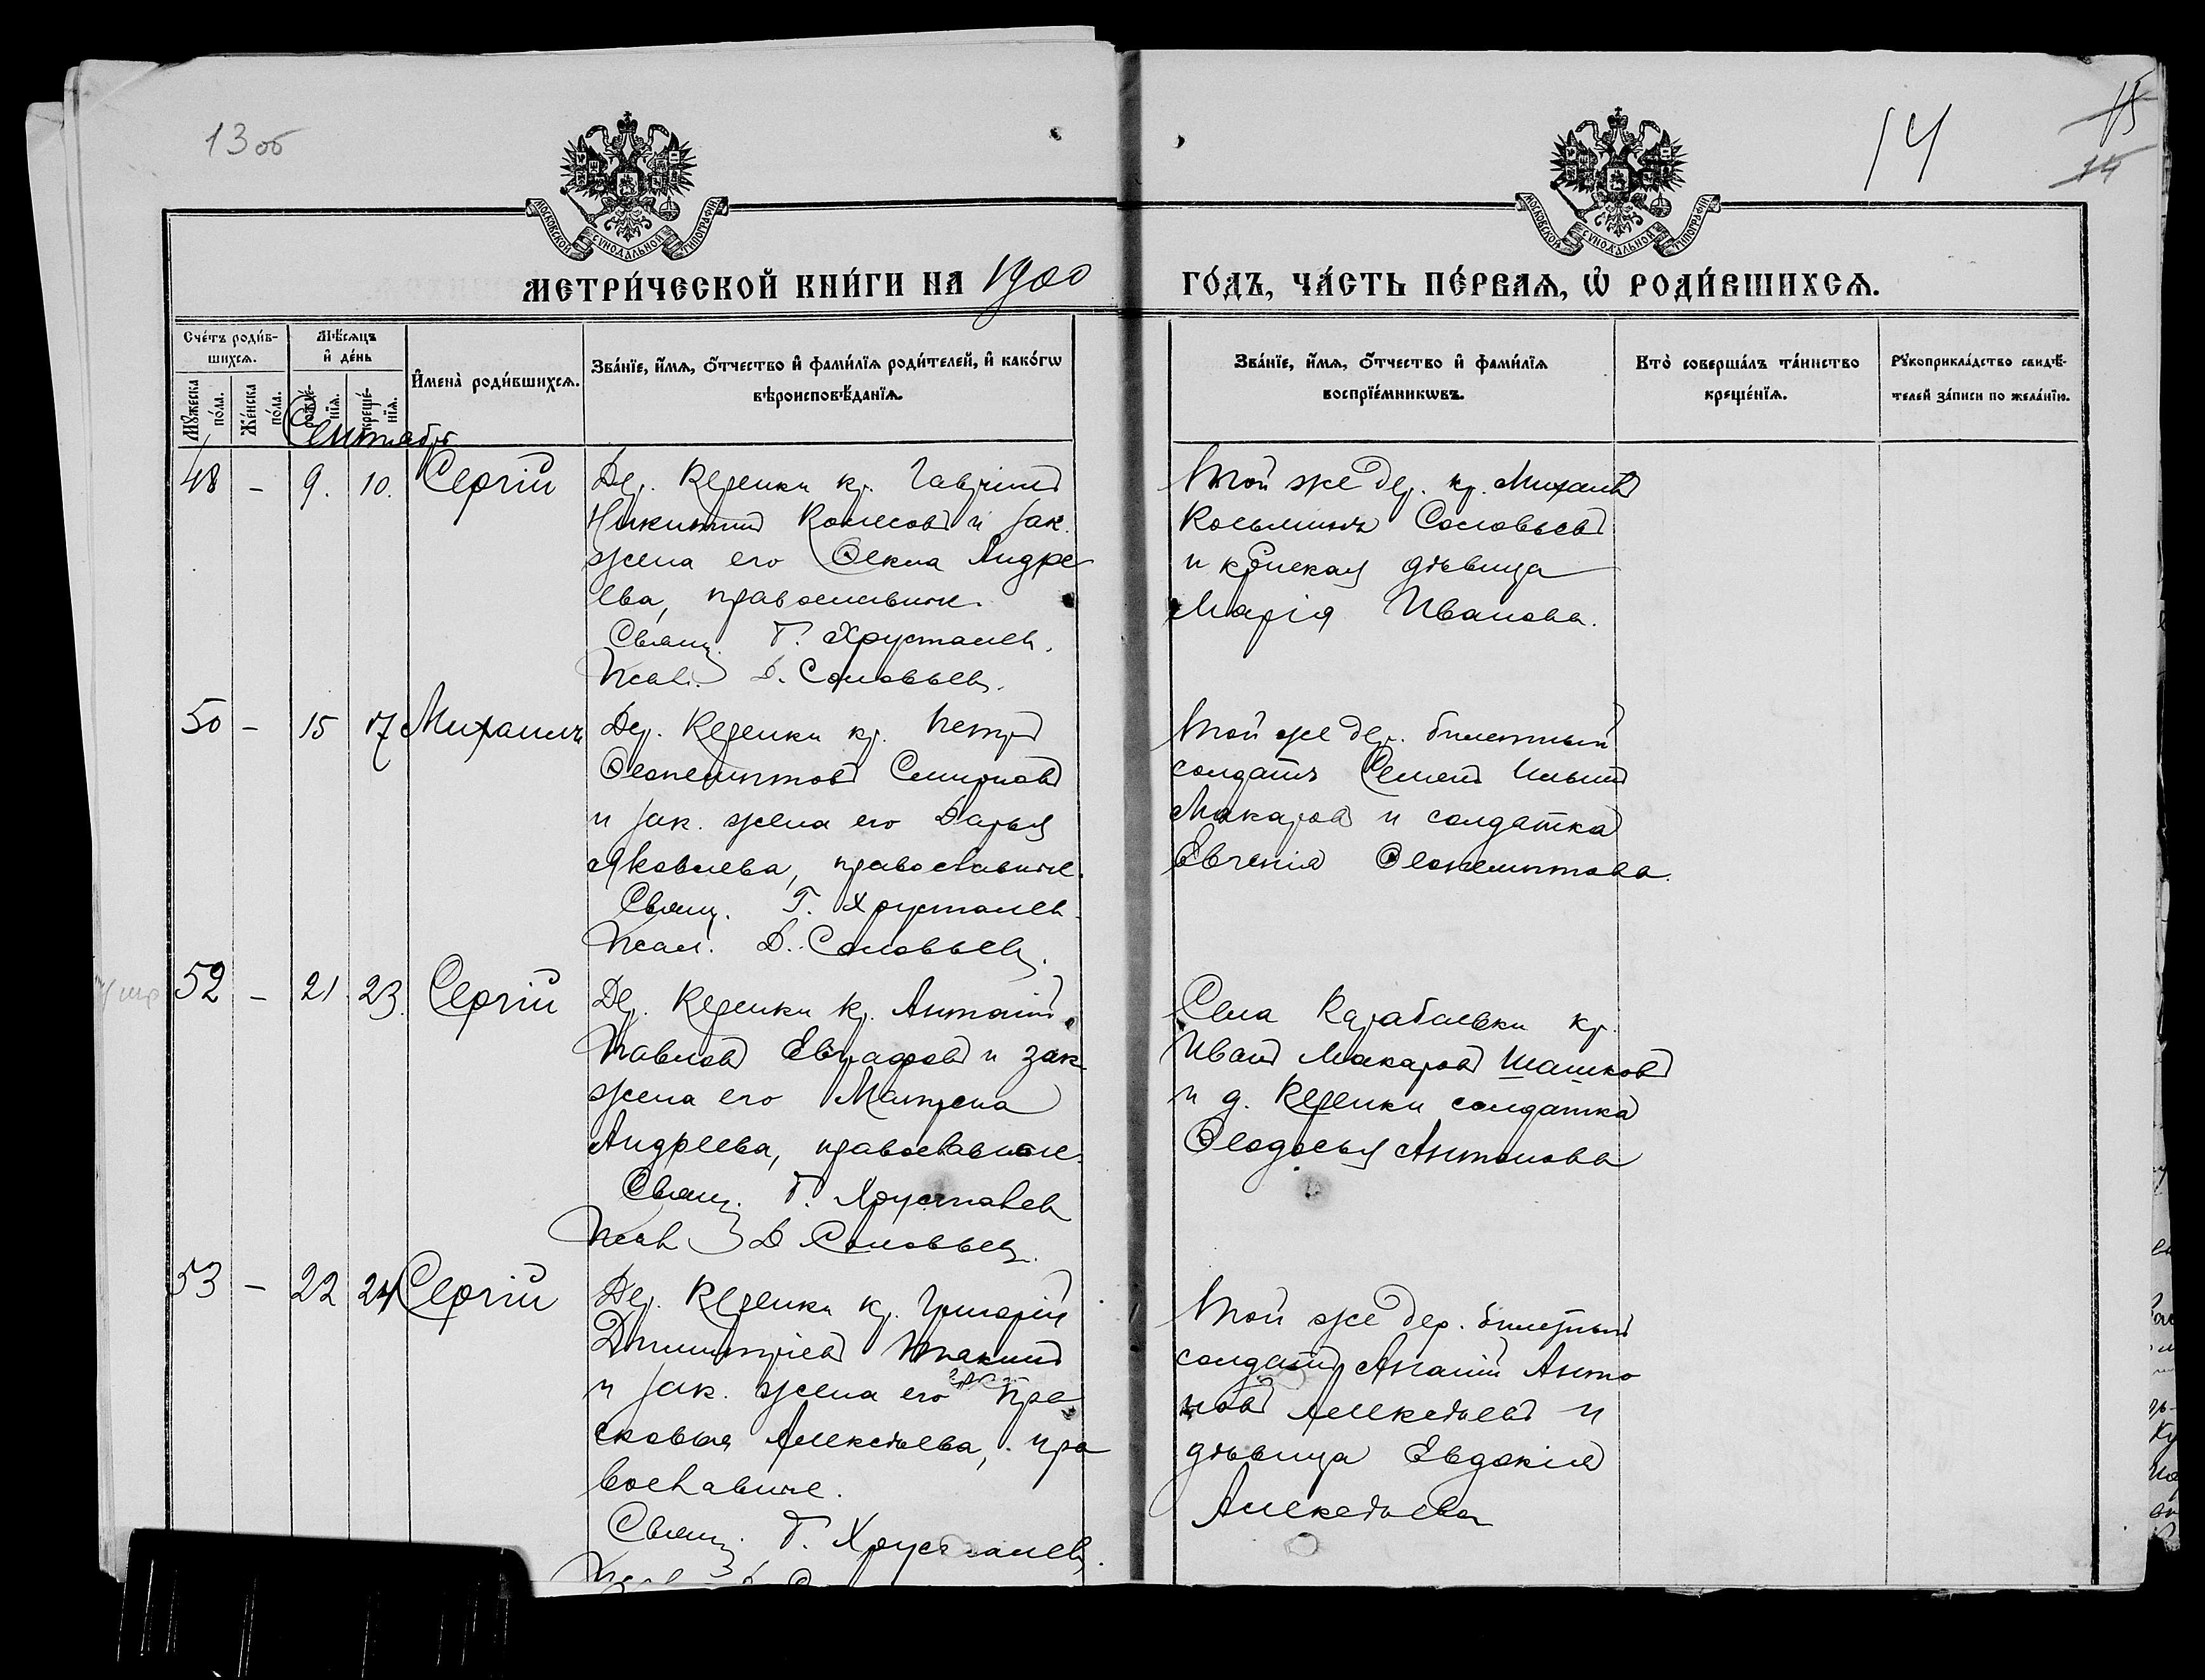 13 об
14
15
14
МОСКОВСКОЙ СУНОДАЛЬНОЙ ТИПОГРАФІИ
МОСКОВСКОЙ СУНОДАЛЬНОЙ ТИПОГРАФІИ
МЕТРИ́ЧЕСКОЙ КНИ́ГИ НА 1900
ГО́ДЪ, ЧА́СТЬ ПЕ́РВАѦ, Ѡ҆ РОДИ́ВШИХСѦ.
Сче́тъ роди́в-
шихсѧ.
Мꙋжеска
по́ла.
Же́нска
по́ла.
Мѣ́сѧцъ
и҆ де́нь
рожде́-
нїѧ.
креще́-
нїѧ.
И҆мена̀ роди́вшихсѧ.
Зва́нїе, и҆́мѧ, ѻ҆́тчество и҆ фами́лїѧ роди́телей, и҆ како́гѡ
вѣроисповѣ́данїѧ.
Зва́нїе, и҆́мѧ, ѻ҆́тчество и҆ фами́лїѧ
воспрїе́мникѡвъ.
Кто̀ соверша́лъ та́инство
креще́нїѧ.
Рꙋкоприкла́дство свидѣ́-
телей за́писи по жела́нїю.
Сентябрь
48 - 9. 10. Сергій
Дер. Кеденки кр. Гавріилъ
Никитинъ Колесовъ и зак.
жена его Ѳекла Андре
ева, православные.
Свящ. Г. Хрусталев.
Псал. Д. Соловьев.
Той же дер. кр. Михаилъ
Косьминъ Соловьевъ
и крѣнская дѣвица
Марія Иванова.
50 - 15 17 Михаилъ
Дер. Кеденки кр. Петръ
Ѳеопемптовъ Смирновъ
и зак. жена его Дарья
Яковлева, православные.
Свящ. Г. Хрусталев.
Псал. Д. Соловьев.
Той же дер. билетный
солдатъ Семенъ Ильинъ
Макаровъ и солдатка
Евгенія Ѳеопемптова.
52 - 21 23. Сергій
Дер. Кеденки кр. Антоній
Павловъ Евграфовъ и зак.
жена его Матрена
Андреева, православные.
Свящ. Г. Хрусталев
Псал Д Соловьев.
Села Карабаевки кр.
Иванъ Макаровъ Шашковъ
и д. Кеденки солдатка
Ѳеодосья Антонова
53 - 22 24 Сергій
Дер. Кеденки кр. Григорій
Дмитріевъ
и зак. жена его Пра
сковья Алексѣева, пра
вославные.
Свящ. Г. Хрусталев.
Той же дер. билетный
солдатъ Ананій Анто
новъ Алексѣевъ и
дѣвица Евдокія
Алексѣева